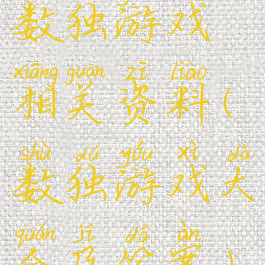 数独游戏
xiāng guān zī liào
相关资料(
shù dú yóu xì dà
数独游戏大
quán jí dá àn